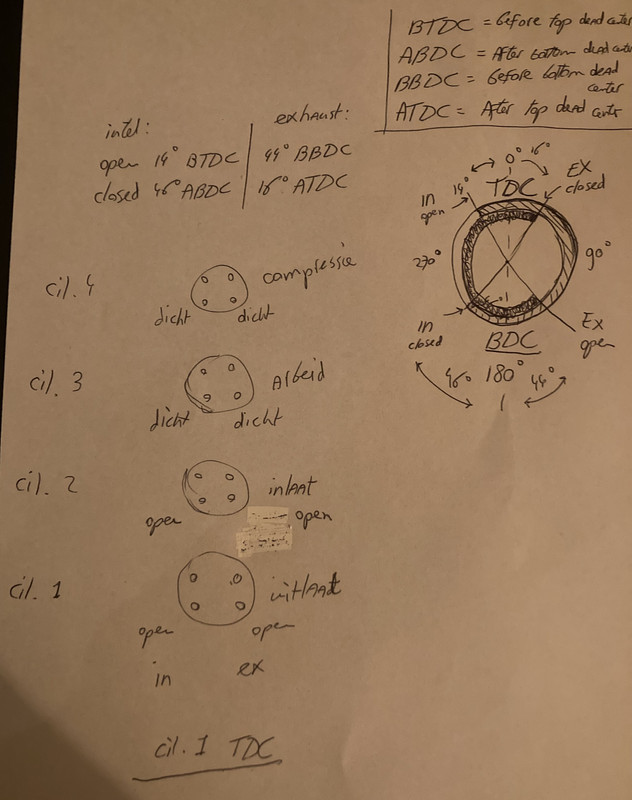 BTDC = Before top dead center
ABDC = After bottom dead center
BBDC = Before bottom dead center
ATDC = After top dead centr
intel: exhaust:
open 14° BTDC 44° BBDC
closed 46° ABDC 16° ATDC
0° 16°
14° TDC EX closed
IN open
270° 90°
IN closed
BDC
EX open
46° 180° 44°
cil. 4 compressie
dicht dicht
cil. 3 Arbeid
dicht dicht
cil. 2 inlaat
open open
cil. 1 uitlaat
open open
in ex
cil. 1 TDC